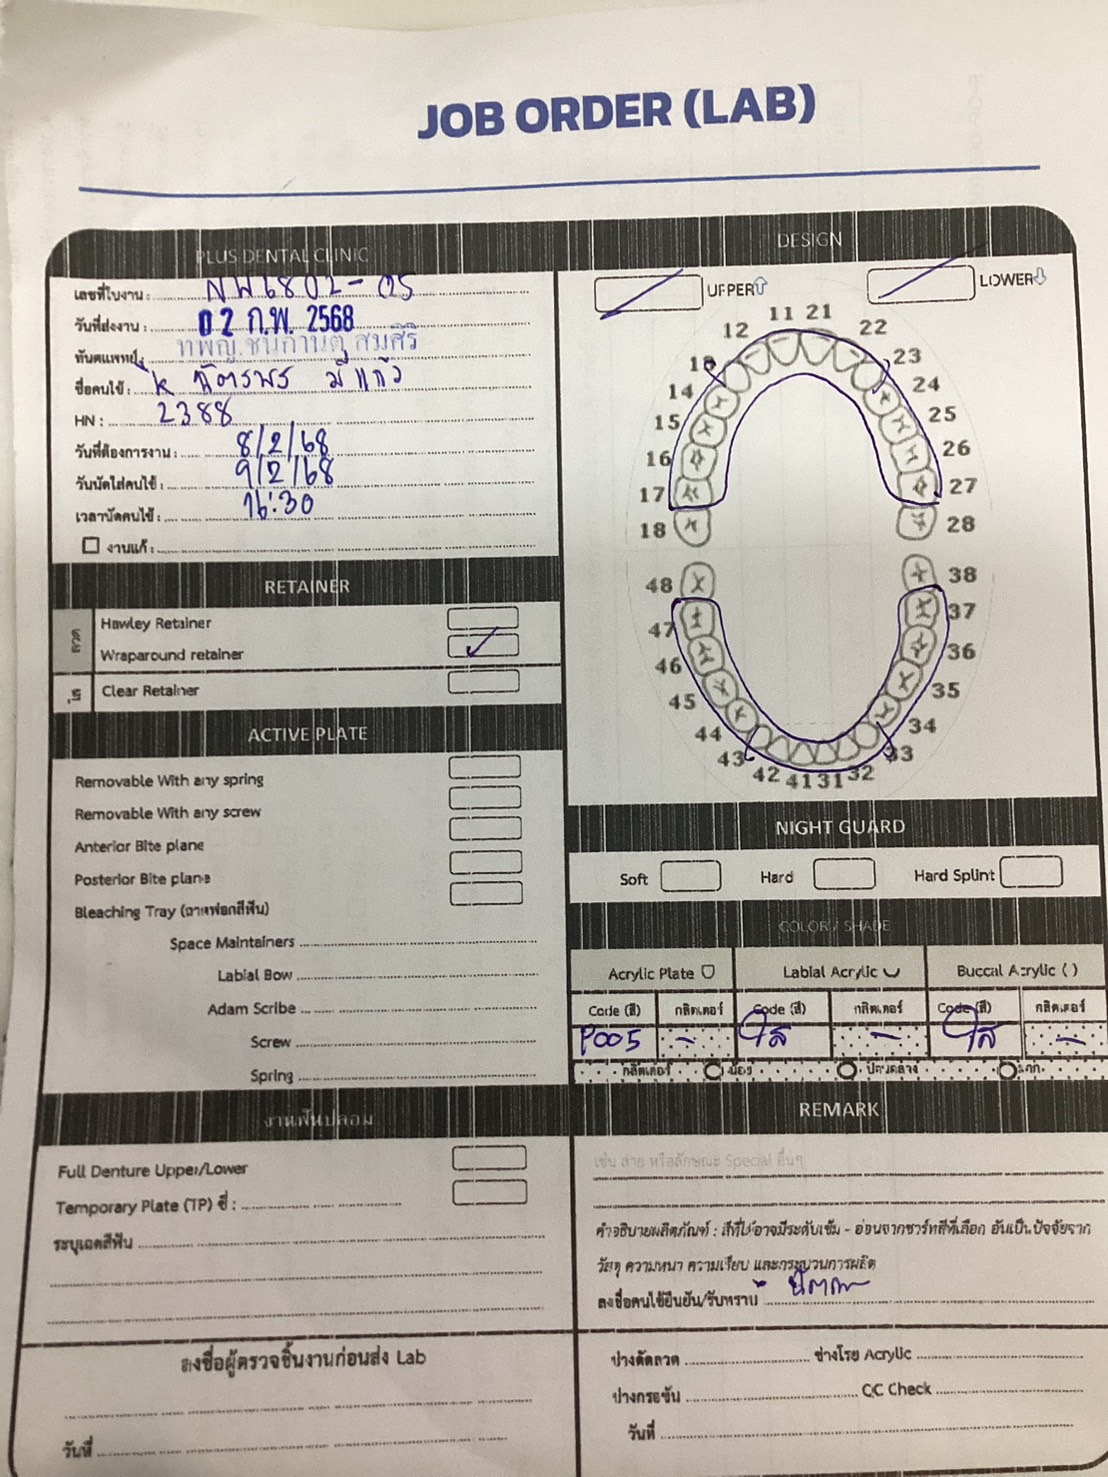 JOB ORDER (LAB)
PLUS DENTAL CLINIC
เลขที่ใบงาน : NW6802-05
วันที่ส่งงาน : 02 ก.พ. 2568
ทันตแพทย์ : ทพญ.ชนกานต์ สมศิริ
ชื่อคนไข้ : K ฉัตรพร มีแก้ว
HN : 2388
วันที่ต้องการงาน : 8/2/68
วันนัดใส่คนไข้ : 9/2/68
เวลานัดคนไข้ : 16:30
งานแก้ :
RETAINER
ลวด
Hawley Retainer
Wraparound retainer
ใส
Clear Retainer
ACTIVE PLATE
Removable With any spring
Removable With any screw
Anterior Bite plane
Posterior Bite plane
Bleaching Tray (ถาดฟอกสีฟัน)
Space Maintainers
Labial Bow
Adam Scribe
Screw
Spring
งานฟันปลอม
Full Denture Upper/Lower
Temporary Plate (TP) ซี่ :
ระบุเฉดสีฟัน
ลงชื่อผู้ตรวจชิ้นงานก่อนส่ง Lab
วันที่
DESIGN
UPPER LOWER
11 21
12 22
13 23
14 24
15 25
16 26
17 27
18 28
48 38
47 37
46 36
45 35
44 34
43 33
42 41 31 32
NIGHT GUARD
Soft Hard Hard Splint
COLOR / SHADE
Acrylic Plate Labial Acrylic Buccal Acrylic ( )
Code (สี) กลิตเตอร์ Code (สี) กลิตเตอร์ Code (สี) กลิตเตอร์
P005 - ใส - ใส -
กลิตเตอร์ น้อย ปานกลาง มาก
REMARK
เช่น ลาย หรือลักษณะ Special อื่นๆ
คำอธิบายผลิตภัณฑ์ : สีที่ได้อาจมีระดับเข้ม - อ่อนจากชาร์ทสีที่เลือก อันเป็นปัจจัยจาก
วัสดุ ความหนา ความเรียบ และกระบวนการผลิต
ลงชื่อคนไข้ยืนยัน/รับทราบ
ช่างดัดลวด ช่างโรย Acrylic
ช่างกรอขัด QC Check
วันที่